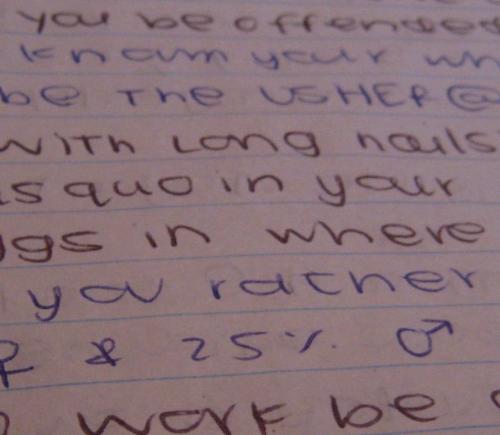 you be offended
know your wh
be The USHER@
WITH LONG nails
us quo in your
gs in where
you rather
♀ & 25% ♂
work be